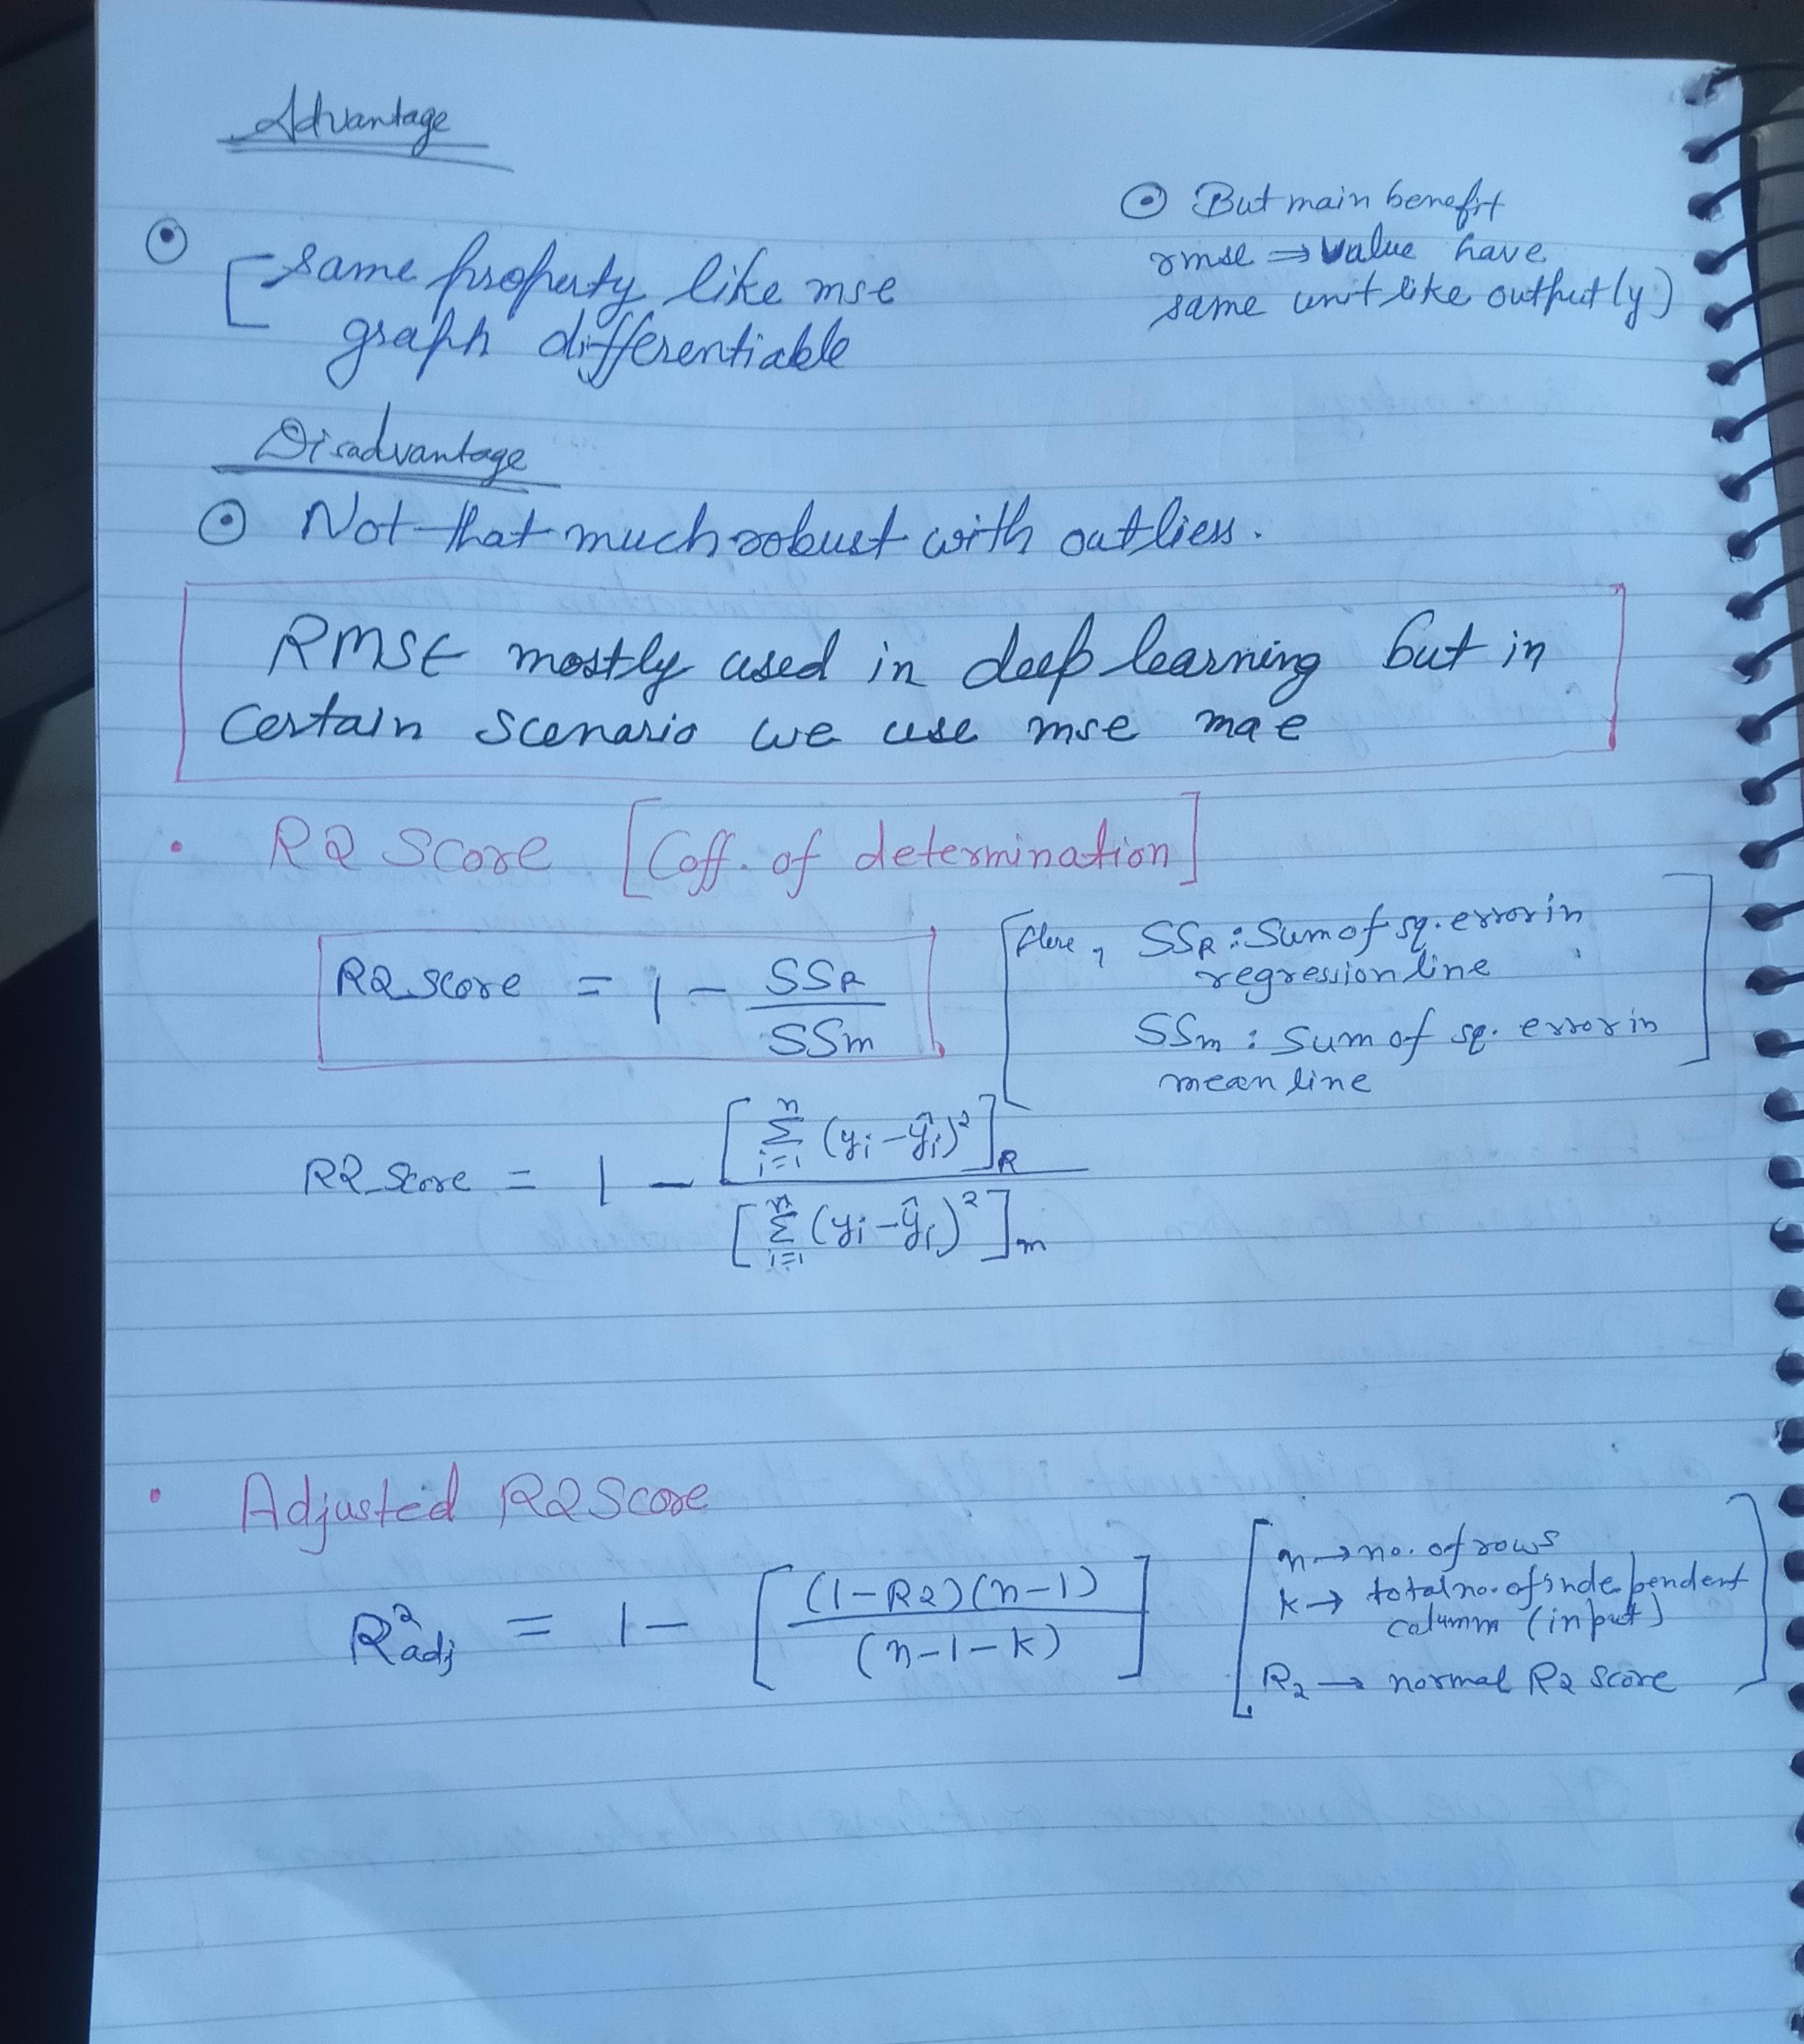 Advantage
⊙ [ same property like mse
graph differentiable
⊙ But main benefit
rmse ⇒ value have
same unit like output (y)
Disadvantage
⊙ Not that much robust with outliers.
RMSE mostly used in deep learning but in
certain scenario we use mse mae
• R2 Score [Coff. of determination]
R2 score = 1 - SSR / SSm
[Here, SSR : Sum of sq. error in
regression line
SSm : Sum of sq. error in
mean line]
R2_Score = 1 - [Σ i=1 n (yi - ŷi)²]R / [Σ i=1 n (yi - ŷi)²]m
• Adjusted R2 Score
R²adj = 1 - [(1-R2)(n-1) / (n-1-k)]
[n → no. of rows
k → total no. of independent
column (input)
R2 → normal R2 score]